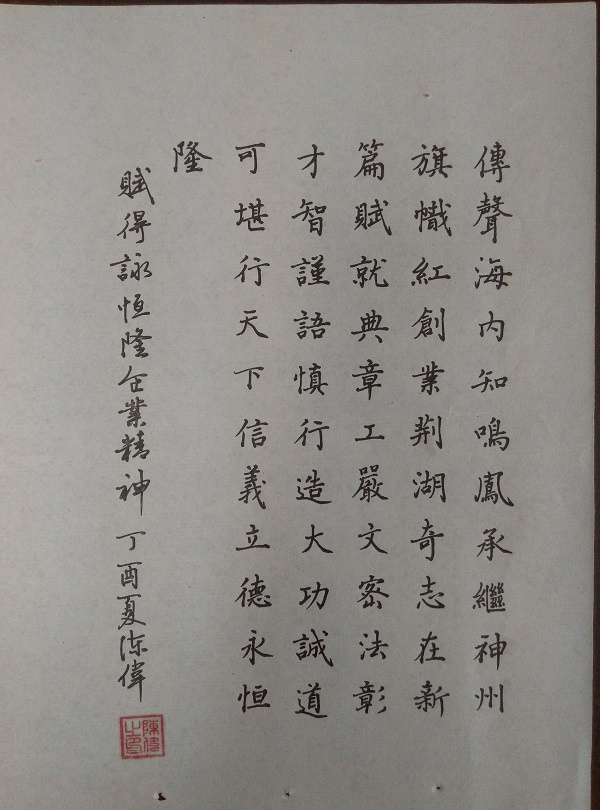 傳聲海内知鳴鳳承繼神州
旗幟紅創業荆湖奇志在新
篇賦就典章工嚴文密法彰
才智謹語慎行造大功誠道
可堪行天下信義立德永恒
隆
賦得詠恒隆企業精神丁酉夏陈偉